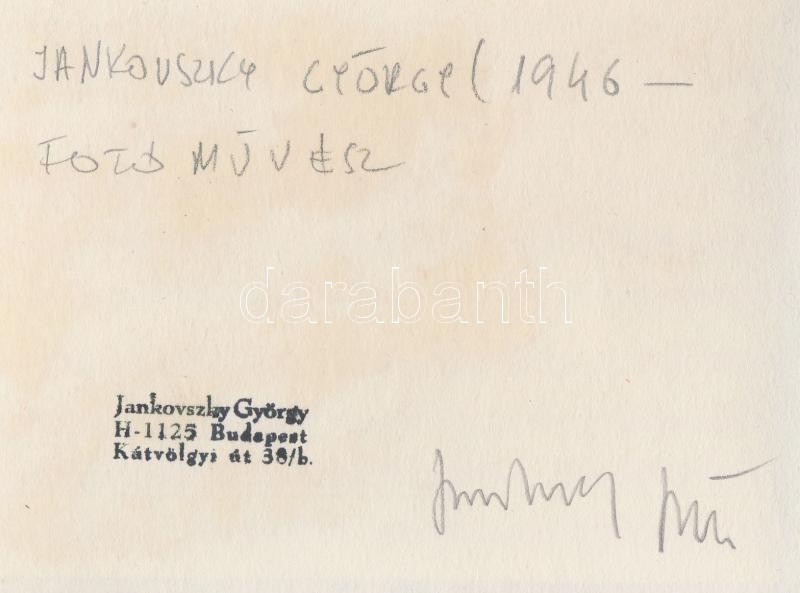 JANKOVSZKY GYÖRGY (1946 —
FOTÓ MŰVÉSZ
darabanth
Jankovszky György
H-1125 Budapest
Kátvölgyi út 38/b.